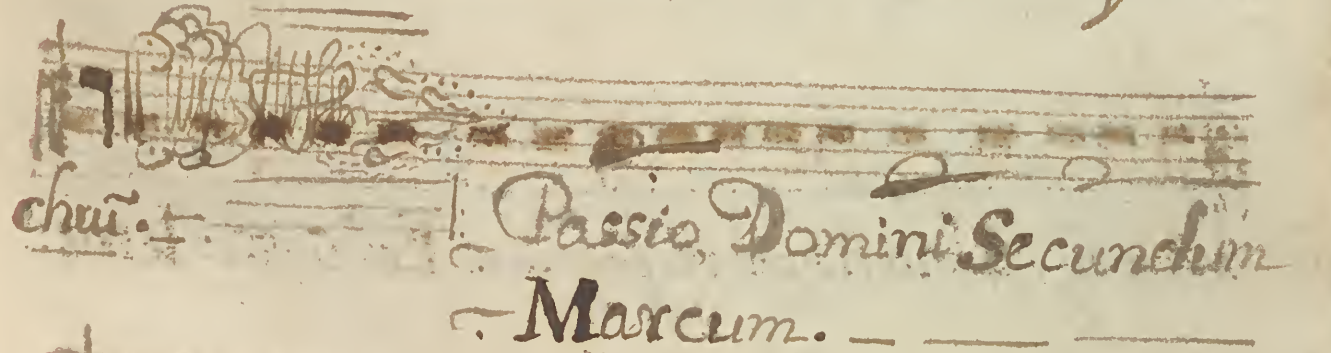 chrū. Passio, Domini Secundum
Marcum.